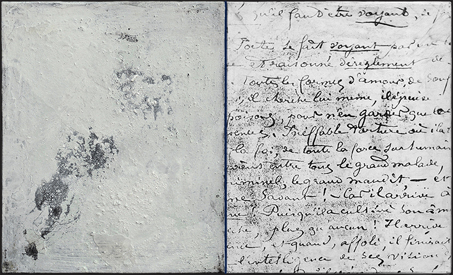 u'il faut être voyant,
Poète se fait voyant par un
et raisonné dérèglement de
Toutes les formes d'amour, de souf
il cherche lui même, il épuise
poisons, pour n'en garder que
ences. Ineffable torture où il a
la foi, de toute la force surhumain
entre tous le grand malade,
minel, le grand maudit — et
Savant! Car il arrive à
Puisqu'il a cultivé son âm
plus qu'aucun! Il arrive
et quand, affolé, il finirait
l'intelligence de ses vision